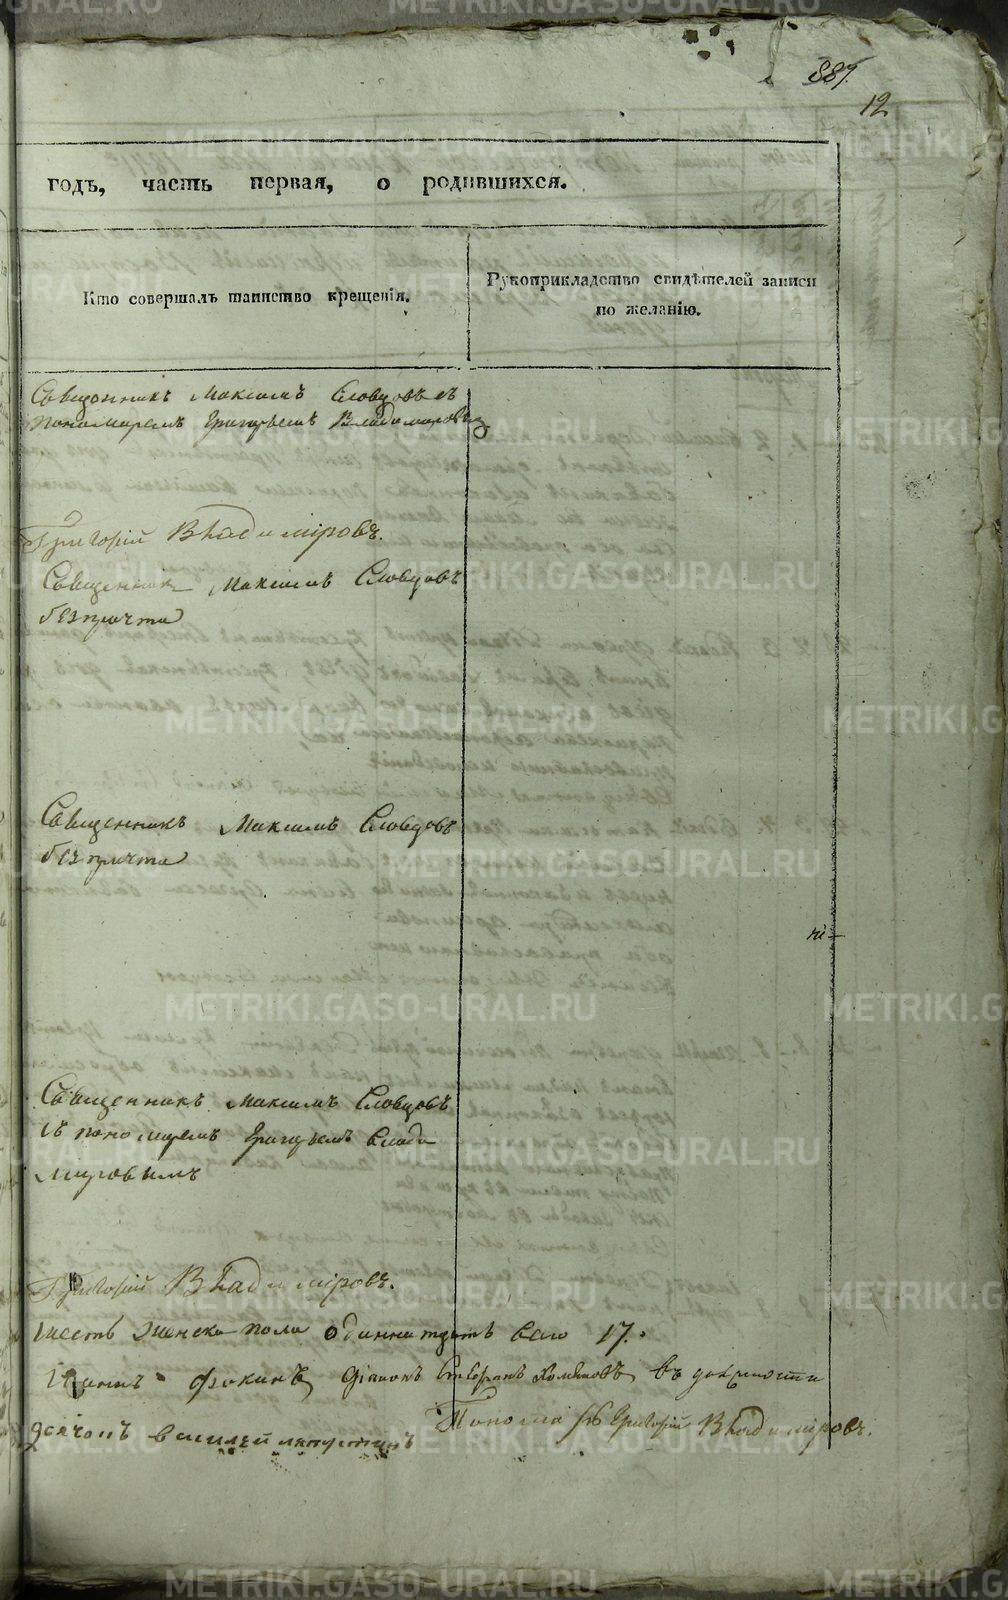 METRIKI.GASO-URAL.RU
887.
12
годъ, часть первая, о родившихся.
Кто совершалъ таинство крещенія.
Рукоприкладство свидѣтелей записи
по желанію.
Священникъ Максимъ Словцовъ съ
пономаремъ Григорьемъ Владимировы
Григорій Владиміровъ.
Священник Максимъ Словцовъ
безпричта
Священникъ Максимъ Словцовъ
безпричта
Священникъ Максимъ Словцовъ
съ пономаремъ Григорьемъ Влади
мировымъ
Григорій Владиміровъ.
шесть женска пола одиннатцать всего 17.
Фокинъ Діаконъ Хомяковъ въ должности
Пономарь Григорій Владиміровъ.
дьячочъ василей